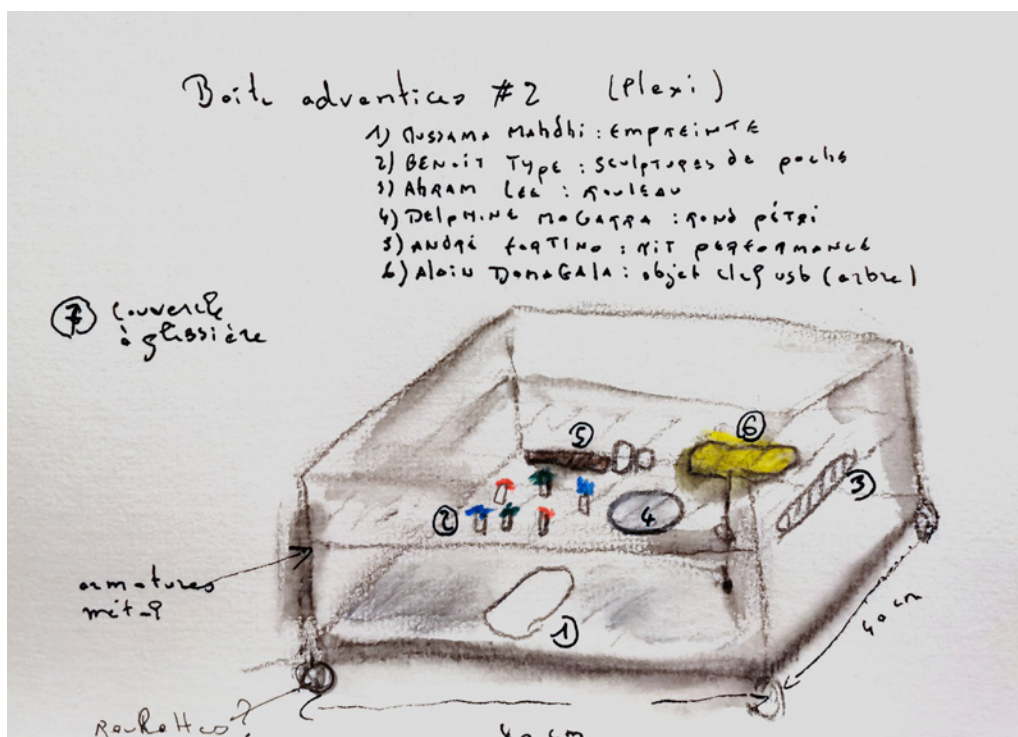 Boite adventices #2 (Plexi)
1) Oussama Mahdhi : EMPREINTE
2) BENOIT TYPE : Sculptures de poche
3) ABRAM LEE : ROULEAU
4) DELPHINE MOGARRA : ROND PÉTRI
5) ANDRÉ FORTINO : KIT PERFORMANCE
6) Alain DOMAGALA : objet clef usb (arbre)
7 Couvercle
à glissière
5
6
3
2
4
armatures
métal
1
40 cm
Roulettes ?
40 cm